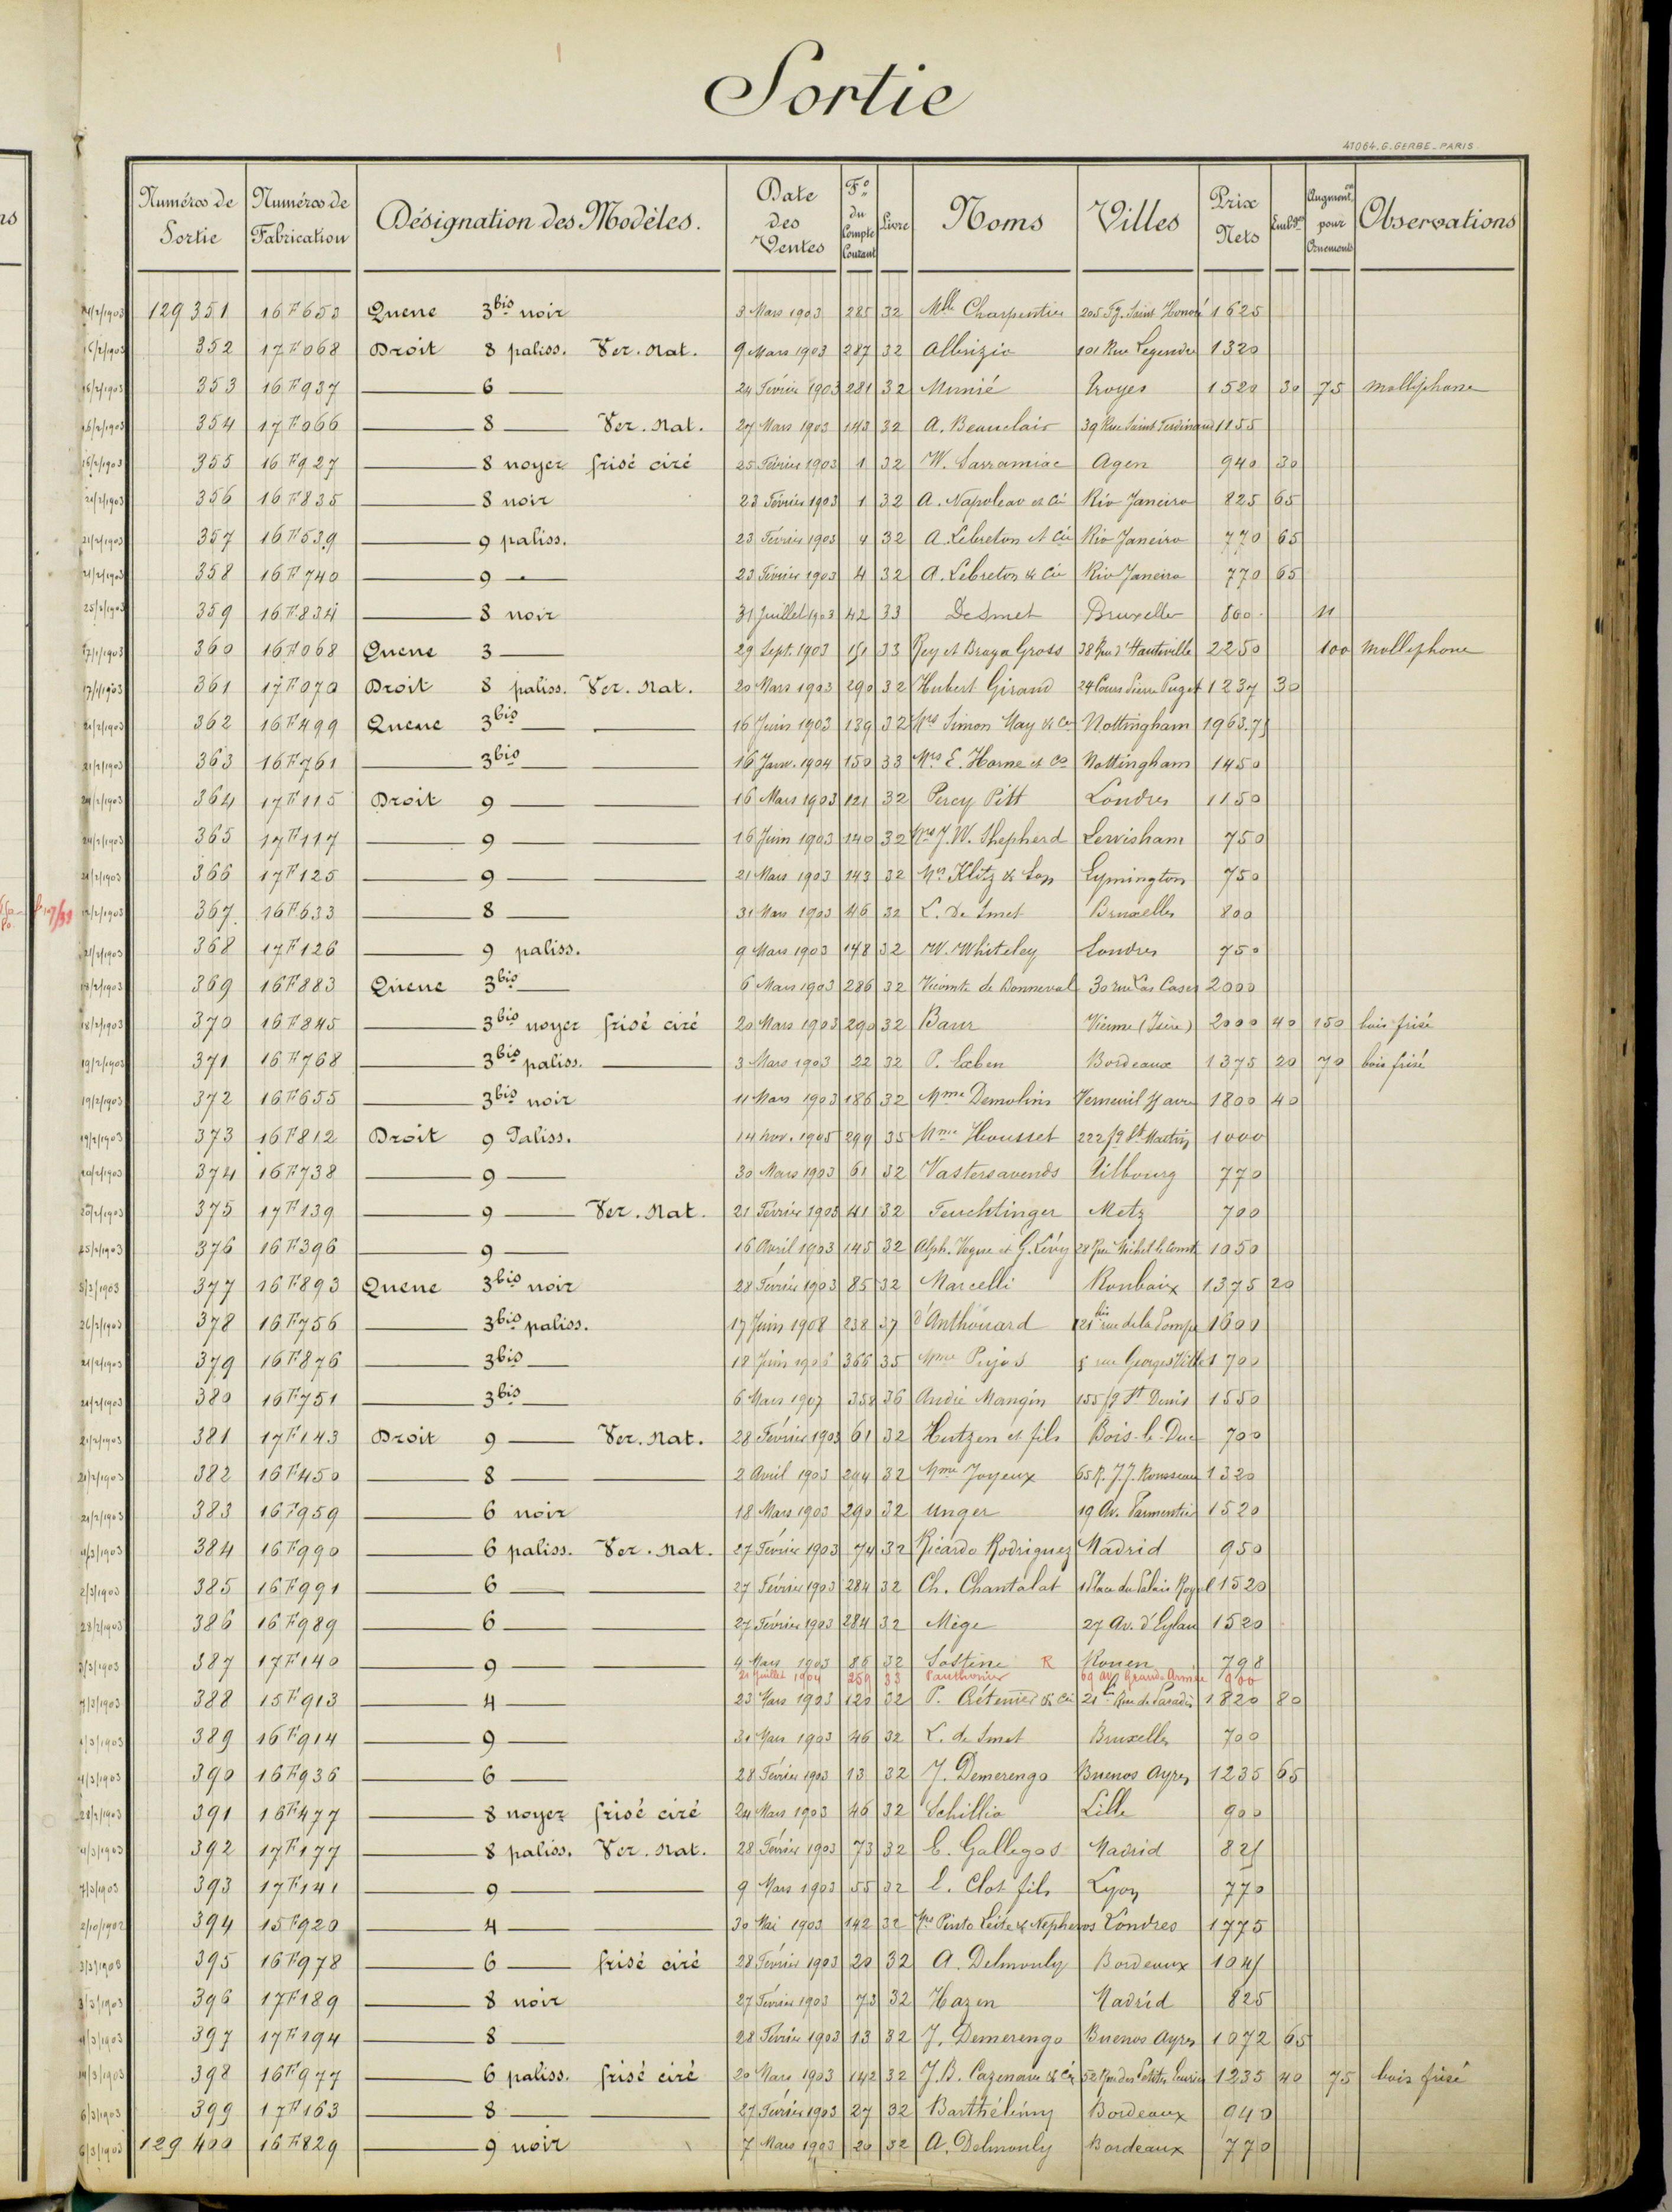 Sortie
41064. G. GERBE_PARIS
Numéros de Sortie | Numéros de Fabrication | Désignation des Modèles. | Date des Ventes | F° du Compte Courant | Livre | Noms | Villes | Prix Nets | Emb | Augment. pour Ornements | Observations
129 351 | 16F653 | Queue 3bis noir | 3 Mars 1903 | 285 | 32 | Mlle Charpentier | 205 Fg. Saint Honoré | 1625
352 | 17F068 | Droit 8 paliss. Ver. Nat. | 9 Mars 1903 | 287 | 32 | Albrizio | 101 Rue Legendre | 1320
353 | 16F937 | — 6 — | 24 Février 1903 | 281 | 32 | Munié | Troyes | 1520 | 30 | 75 | molliphone
354 | 17F066 | — 8 — Ver. Nat. | 27 Mars 1903 | 143 | 32 | A. Beauclair | 39 Rue Saint Ferdinand | 1155
355 | 16F927 | — 8 noyer frisé ciré | 25 Février 1903 | 1 | 32 | W. Sarramiac | Agen | 940 | 30
356 | 16F835 | — 8 noir | 23 Février 1903 | 1 | 32 | A. Napoleao et Cie | Rio Janeiro | 825 | 65
357 | 16F539 | — 9 paliss. | 23 Février 1903 | 4 | 32 | A. Lebreton et Cie | Rio Janeiro | 770 | 65
358 | 16F740 | — 9 — | 23 Février 1903 | 4 | 32 | A. Lebreton & Cie | Rio Janeiro | 770 | 65
359 | 16F834 | — 8 noir | 31 Juillet 1903 | 42 | 33 | De Smet | Bruxelles | 800 | 11
360 | 16F068 | Queue 3 — | 29 Sept. 1903 | 151 | 33 | Rey et Braga Gross | 38 Rue d'Hauteville | 2250 | 100 | molliphone
361 | 17F070 | Droit 8 paliss. Ver. Nat. | 20 Mars 1903 | 290 | 32 | Hubert Giraud | 24 Cours Pierre Puget | 1237 | 30
362 | 16F499 | Queue 3bis — — | 16 Juin 1903 | 139 | 32 | Mrs Simon May & Co | Nottingham | 1963.75
363 | 16F761 | 3bis — — | 16 Janv. 1904 | 150 | 33 | Mrs E. Horne et Co | Nottingham | 1450
364 | 17F115 | Droit 9 — — | 16 Mars 1903 | 121 | 32 | Percy Pitt | Londres | 1150
365 | 17F117 | — 9 — — | 16 Juin 1903 | 140 | 32 | Mrs J. W. Shepherd | Lewisham | 750
366 | 17F125 | — 9 — — | 21 Mars 1903 | 143 | 32 | Mrs Klitz & Son | Lymington | 750
367. | 16F633 | — 8 — | 31 Mars 1903 | 46 | 32 | L. De Smet | Bruxelles | 800
368 | 17F126 | — 9 paliss. | 9 Mars 1903 | 148 | 32 | W. Whiteley | Londres | 750
369 | 16F883 | Queue 3bis — | 6 Mars 1903 | 286 | 32 | Vicomte de Bonneval | 30 rue Las Cases | 2000
370 | 16F845 | — 3bis noyer frisé ciré | 20 Mars 1903 | 290 | 32 | Baur | Vienne (Isère) | 2000 | 40 | 150 | bois frisé
371 | 16F768 | — 3bis paliss. — | 3 Mars 1903 | 22 | 32 | P. | Bordeaux | 1375 | 20 | 70 | bois frisé
372 | 16F655 | — 3bis noir | 11 Mars 1903 | 186 | 32 | Mme Demolins | Verneuil s/ avre | 1800 | 40
373 | 16F812 | Droit 9 Paliss. | 14 nov. 1905 | 299 | 35 | Mme Housset | 222 fg St Martin | 1000
374 | 16F738 | — 9 — | 30 Mars 1903 | 61 | 32 | Vastersavends | Tilbourg | 770
375 | 17F139 | — 9 — Ver. Nat. | 21 Février 1903 | 41 | 32 | Feuchtinger | Metz | 700
376 | 16F396 | — 9 — | 16 Avril 1903 | 145 | 32 | Alph. Vogue et G. Lévy | 28 Rue Michel le Comte | 1050
377 | 16F893 | Queue 3bis noir | 28 Février 1903 | 85 | 32 | Marcelli | Roubaix | 1375 | 20
378 | 16F756 | — 3bis paliss. | 17 Juin 1908 | 238 | 37 | d'Anthouard | 121 bis rue de la Pompe | 1600
379 | 16F876 | — 3bis — | 18 Juin 1906 | 366 | 35 | Mme Pujos | 5 rue Georges Ville | 1700
380 | 16F751 | — 3bis — | 6 Mars 1907 | 358 | 36 | André Mangin | 155 fg St Denis | 1550
381 | 17F143 | Droit 9 — Ver. Nat. | 28 Février 1903 | 61 | 32 | Hutzen et fils | Bois-le-Duc | 700
382 | 16F450 | — 8 — — | 2 Avril 1903 | 294 | 32 | Mme Joyeux | 65 R. J.J. Rousseau | 1320
383 | 16F959 | — 6 noir | 18 Mars 1903 | 290 | 32 | Unger | 19 Av. Parmentier | 1520
384 | 16F990 | — 6 paliss. Ver. Nat. | 27 Février 1903 | 74 | 32 | Ricardo Rodriguez | Madrid | 950
385 | 16F991 | — 6 — — | 27 Février 1903 | 284 | 32 | Ch. Chantalat | 1 Place du Palais Royal | 1520
386 | 16F989 | — 6 — — | 27 Février 1903 | 284 | 32 | Mège | 27 Av. d'Eylau | 1520
387 | 17F140 | — 9 — — | 4 Mars 1903 | 86 | 32 | Sostine R | Rouen | 798
21 Juillet 1904 | 259 | 33 | Pauthonier | 69 av. Grande Armée | 900
388 | 15F913 | — 4 — | 23 Mars 1903 | 120 | 32 | P. Crétenier & Cie | 21 bis Rue de Paradis | 1820 | 80
389 | 16F914 | — 9 — | 31 Mars 1903 | 46 | 32 | L. de Smet | Bruxelles | 700
390 | 16F936 | — 6 — | 28 Février 1903 | 13 | 32 | J. Demerengo | Buenos Ayres | 1235 | 65
391 | 16F477 | — 8 noyer frisé ciré | 24 Mars 1903 | 46 | 32 | Schillio | Lille | 900
392 | 17F177 | — 8 paliss. Ver. Nat. | 28 Février 1903 | 73 | 32 | E. Gallegos | Madrid | 825
393 | 17F141 | — 9 — — | 9 Mars 1903 | 55 | 32 | E. Clot fils | Lyon | 770
394 | 15F920 | — 4 — — | 30 Mai 1903 | 142 | 32 | Mrs Pinto Leite & Nephews | Londres | 1775
395 | 16F978 | — 6 — frisé ciré | 28 Février 1903 | 20 | 32 | A. Delmouly | Bordeaux | 1045
396 | 17F189 | — 8 noir | 27 Février 1903 | 73 | 32 | Hazen | Madrid | 825
397 | 17F194 | — 8 — | 28 Février 1903 | 13 | 32 | J. Demerengo | Buenos Ayres | 1072 | 65
398 | 16F977 | — 6 paliss. frisé ciré | 20 Mars 1903 | 142 | 32 | J.B. Cazenave & Cie | 52 Rue des Petites Ecuries | 1235 | 40 | 75 | bois frisé
399 | 17F163 | — 8 — — | 27 Février 1903 | 27 | 32 | Barthélémy | Bordeaux | 940
129 400 | 16F829 | — 9 noir | 7 Mars 1903 | 20 | 32 | A. Delmouly | Bordeaux | 770